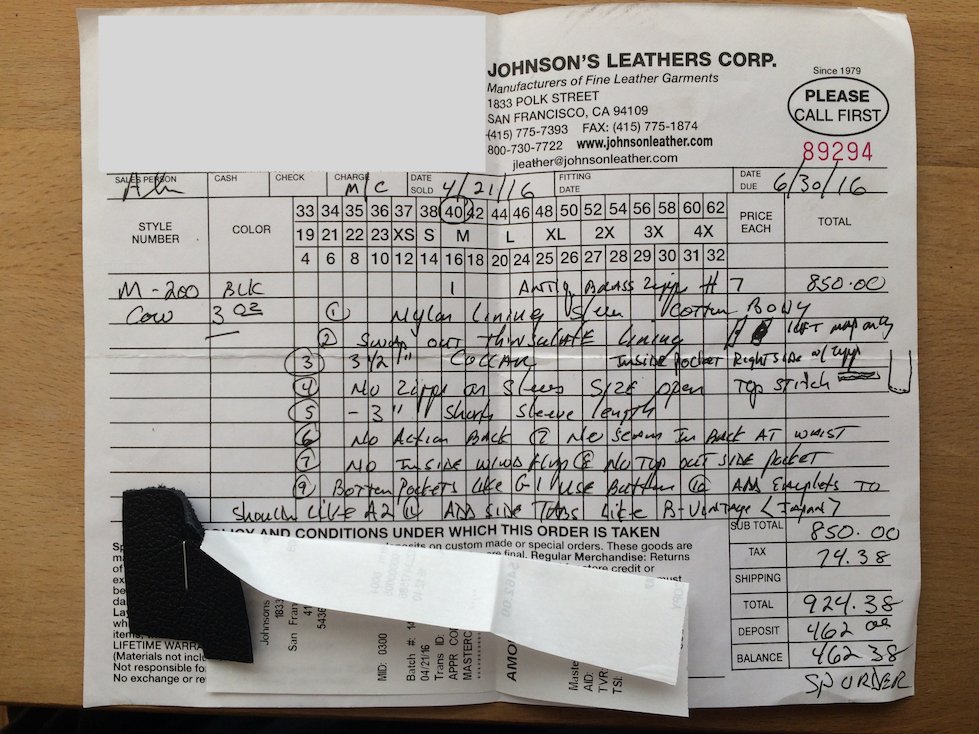 JOHNSON'S LEATHERS CORP.
Manufacturers of Fine Leather Garments
1833 POLK STREET
SAN FRANCISCO, CA 94109
(415) 775-7393 FAX: (415) 775-1874
800-730-7722 www.johnsonleather.com
jleather@johnsonleather.com
Since 1979
PLEASE
CALL FIRST
89294
SALES PERSON CASH CHECK CHARGE M/C DATE SOLD 4/21/16 FITTING DATE DATE DUE 6/30/16
STYLE NUMBER COLOR PRICE EACH TOTAL
33 34 35 36 37 38 40 42 44 46 48 50 52 54 56 58 60 62
19 21 22 23 XS S M L XL 2X 3X 4X
4 6 8 10 12 14 16 18 20 24 25 26 27 28 29 30 31 32
M-200 BLK 1 ANTIQ BRASS Zipp # 7 850.00
Cow 3 oz ① Nylon Lining Cotton BODY
② OUT THINSULATE LINING LEFT only
③ 3 1/2" COLLAR INSIDE POCKET RIGHT SIDE w/ Zipp
④ No Zipp on Sleeves Size open Top STITCH
⑤ - 3" Short Sleeve length
⑥ No Action Back ⑦ No Seam In Back AT WAIST
⑦ No INSIDE WIND Flap ⑧ No Top OUT SIDE Pocket
⑨ Pockets Like G1 Use Button ⑩ ADD Epaulets TO
Shoulder Like A2 ⑪ ADD SIDE TABS Like
POLICY AND CONDITIONS UNDER WHICH THIS ORDER IS TAKEN
deposits on custom made or special orders. These goods are
are final. Regular Merchandise: Returns
store credit or
must
LIFETIME
(Materials not
Not responsible for
No exchange or
SUB TOTAL 850.00
TAX 74.38
SHIPPING
TOTAL 924.38
DEPOSIT 462.00
BALANCE 462.38
SP ORDER
Johnsons
1833
San Fran
MID: 0300
Batch #:
04/21/16
Trans ID:
APPR
AID:
TVR
TSI: